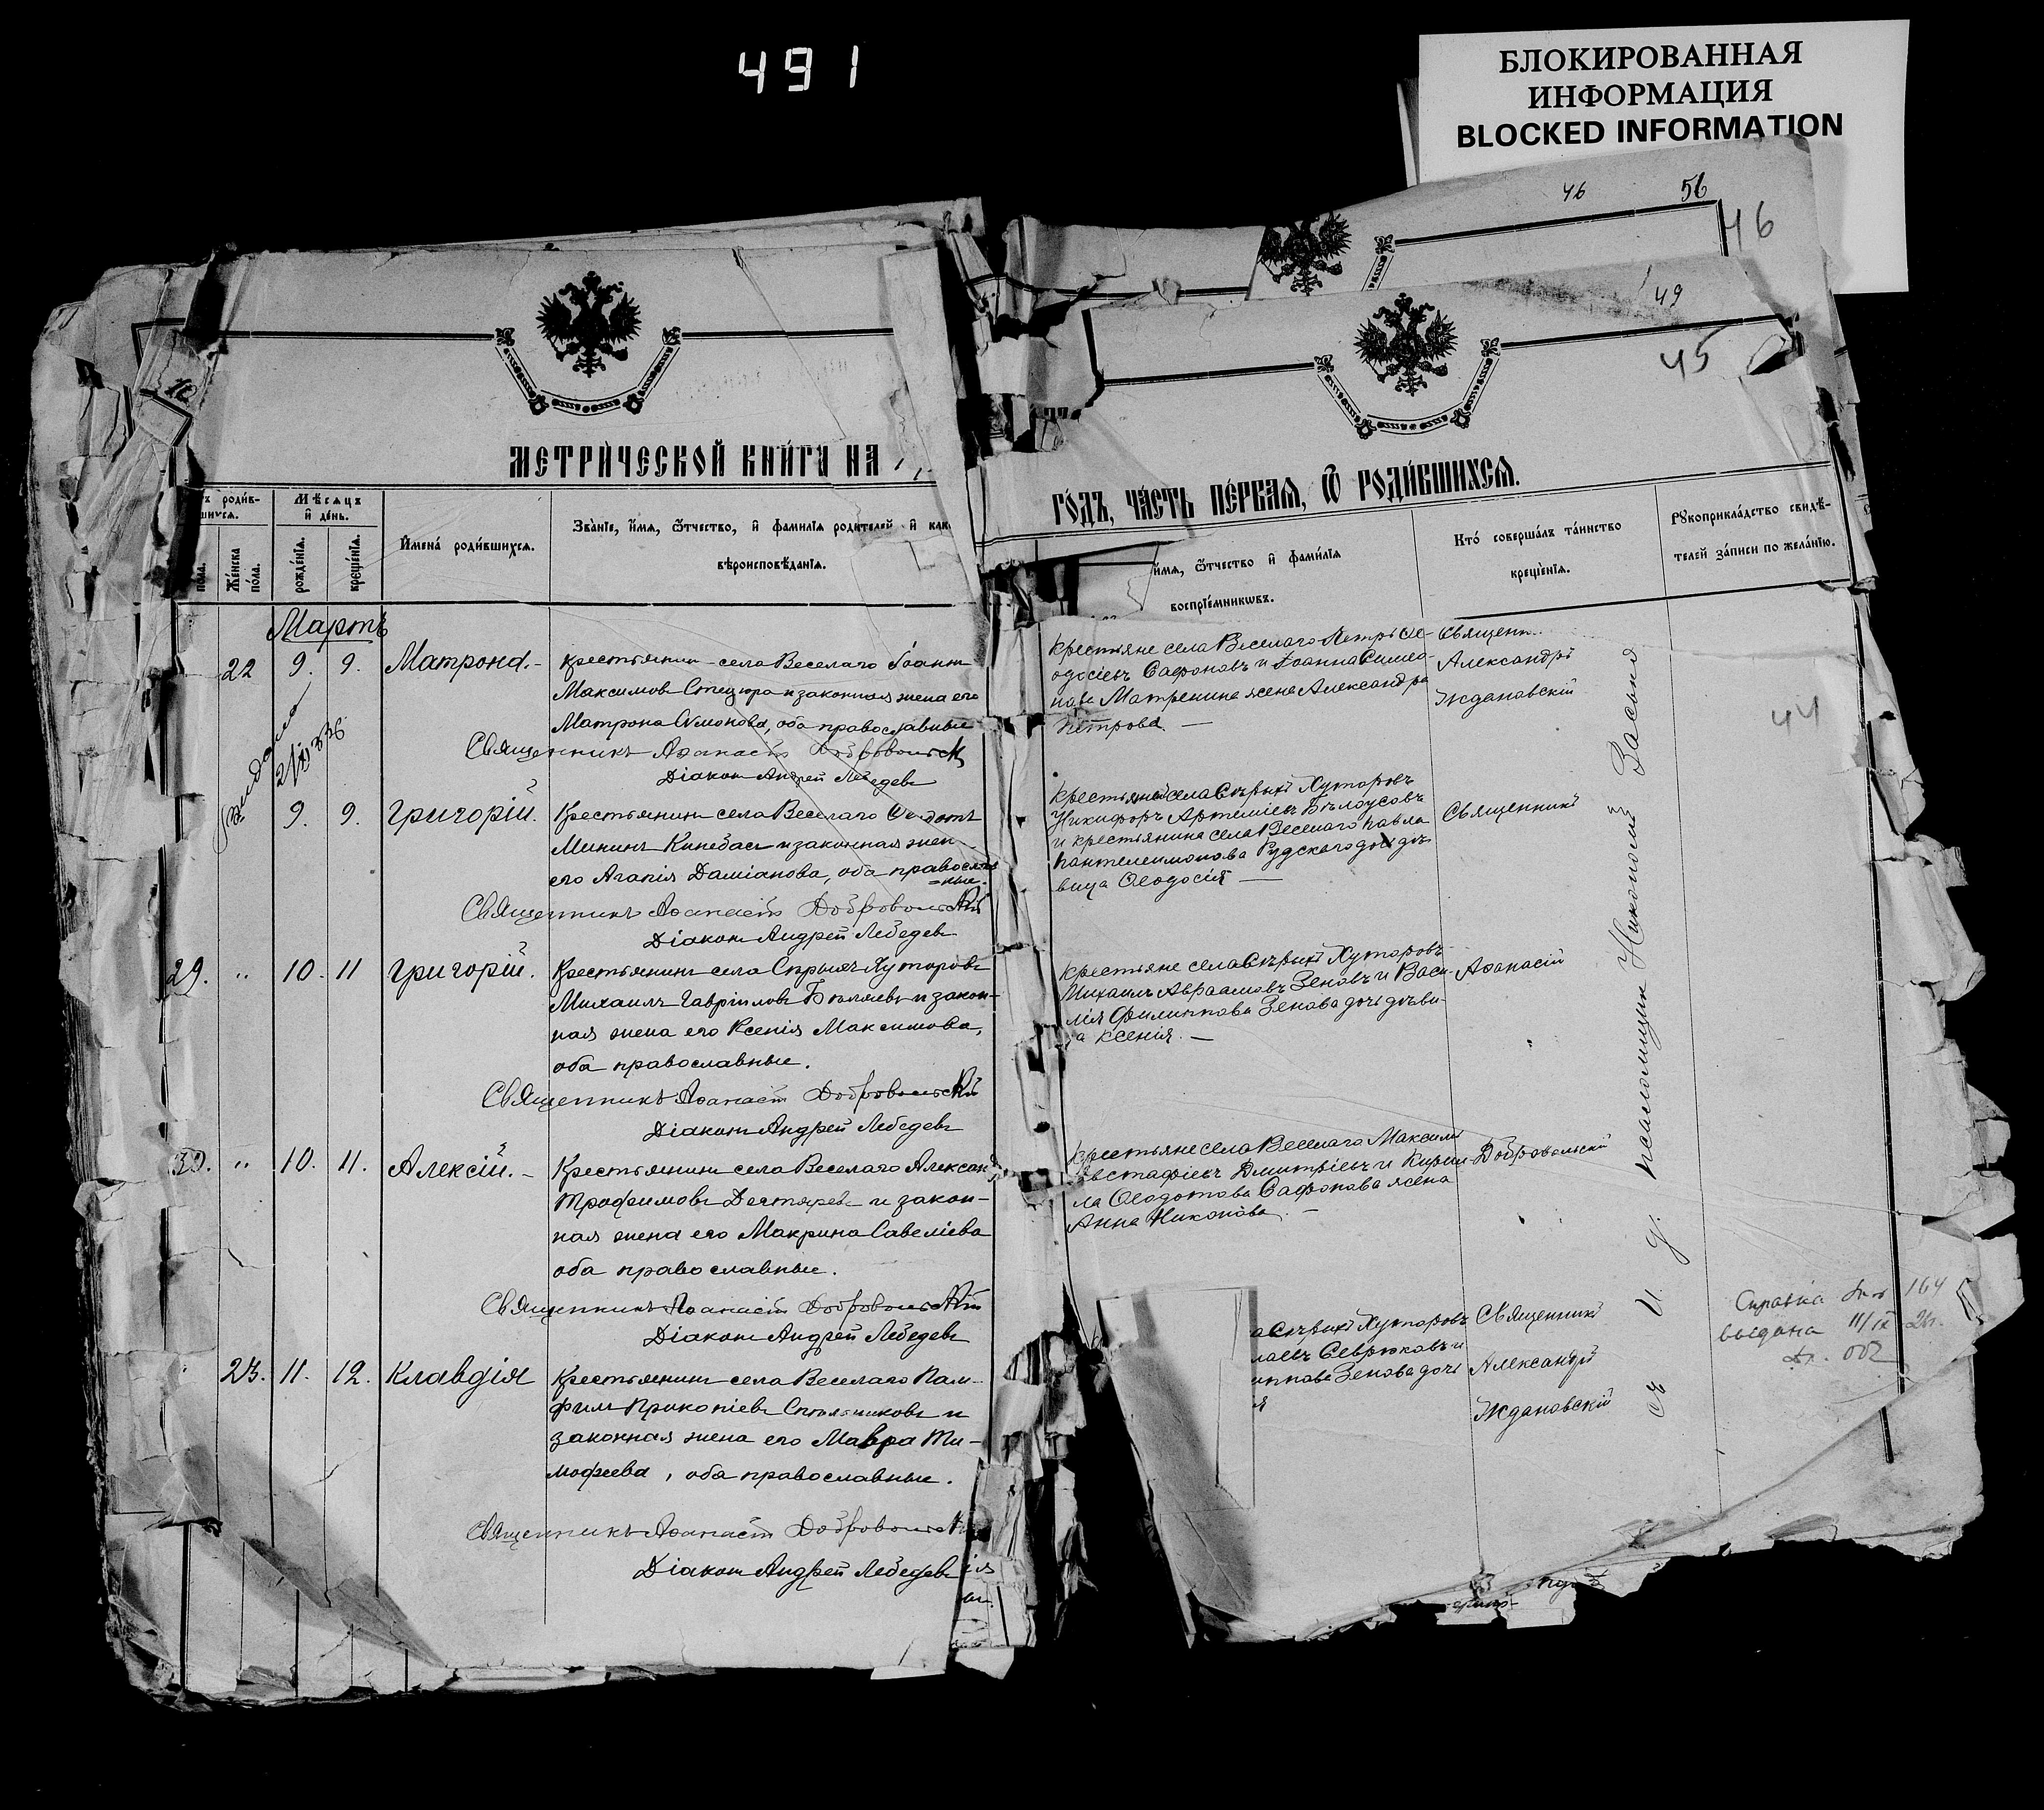 491
БЛОКИРОВАННАЯ
ИНФОРМАЦИЯ
BLOCKED INFORMATION
46
56
46
49
45
МЕТРИЧЕСКОЙ КНИГИ НА
родив-
шихся.
Мѣсяцъ
и день.
Имена родившихся.
Званіе, имя, отчество, и фамилія родителей и как
вѣроисповѣданія.
пола.
Женска
пола.
рожденія.
крещенія.
Мартъ
22 9. 9. Матрона.-
Крестьянинъ села Веселаго Іоаннъ
Максимовъ Стецюра и законная жена его
Матрона Симонова, оба православные
Священникъ Аѳанасій Добровольскій
Діаконъ Андрей Лебедевъ
9. 9. Григорій.
Крестьянинъ села Веселаго Ѳеодотъ
Мининъ и законная жен
его Агапія Даміанова, оба православ
=ные.
Священникъ Аѳанасій Добровольскій
Діаконъ Андрей Лебедевъ
29. " 10. 11 Григорій.
Крестьянинъ села Сѣрыхъ Хуторовъ
Михаилъ Гавріиловъ Бѣляевъ и закон-
ная жена его Ксенія Максимова,
оба православные.
Священникъ Аѳанасій Добровольскій
Діаконъ Андрей Лебедевъ
30. " 10. 11. Алексій.-
Крестьянинъ села Веселаго Александ
Трофимовъ Дегтяревъ и закон-
ная жена его Макрина Савеліева
оба православные.
Священникъ Аѳанасій Добровольскій
Діаконъ Андрей Лебедевъ
23. 11. 12. Клавдія
Крестьянинъ села Веселаго Пам-
филъ Прокопіевъ и
законная жена его Мавра Ти-
моѳеева, оба православные.
Священникъ Аѳанасій Добровольскій
Діаконъ Андрей Лебедевъ
ГОДЪ, ЧАСТЬ ПЕРВАЯ, Ѿ РОДИВШИХСЯ.
имя, отчество и фамилія
воспріемниковъ.
Кто совершалъ таинство
крещенія.
Рукоприкладство свидѣ-
телей записи по желанію.
Крестьяне села Веселаго Петръ Ѳе-
одосіевъ Сафоновъ и Іоанна Симео-
нова Матренина жена Александра
Петрова. —
Священн..
Александръ
Ждановскій
44
Крестьяне села Сѣрыхъ Хуторовъ
Никифоръ Артеміевъ Бѣлоусовъ
и крестьянина села Веселаго Павла
Пантелеимонова Рудскаго дочь дѣ
вица Ѳеодосія —
Священникъ
Крестьяне села Сѣрыхъ Хуторовъ
Михаилъ Авраамовъ Зеновъ и Васи-
лія Филиппова Зенова дочь дѣви-
ца Ксенія. —
Аѳанасій
Крестьяне села Веселаго Максимъ
Евстафіевъ Дмитріевъ и Кирил-
ла Ѳеодотова Сафонова жена
Анна Никонова. -
Добровольскій
Сѣрыхъ Хуторовъ
лаевъ Севрюковъ и
иппова Зенова дочь
я
Священникъ
Александръ
Ждановскій
И. д. псаломщик Никополій
Справка 164
выдана 11/IX 26.